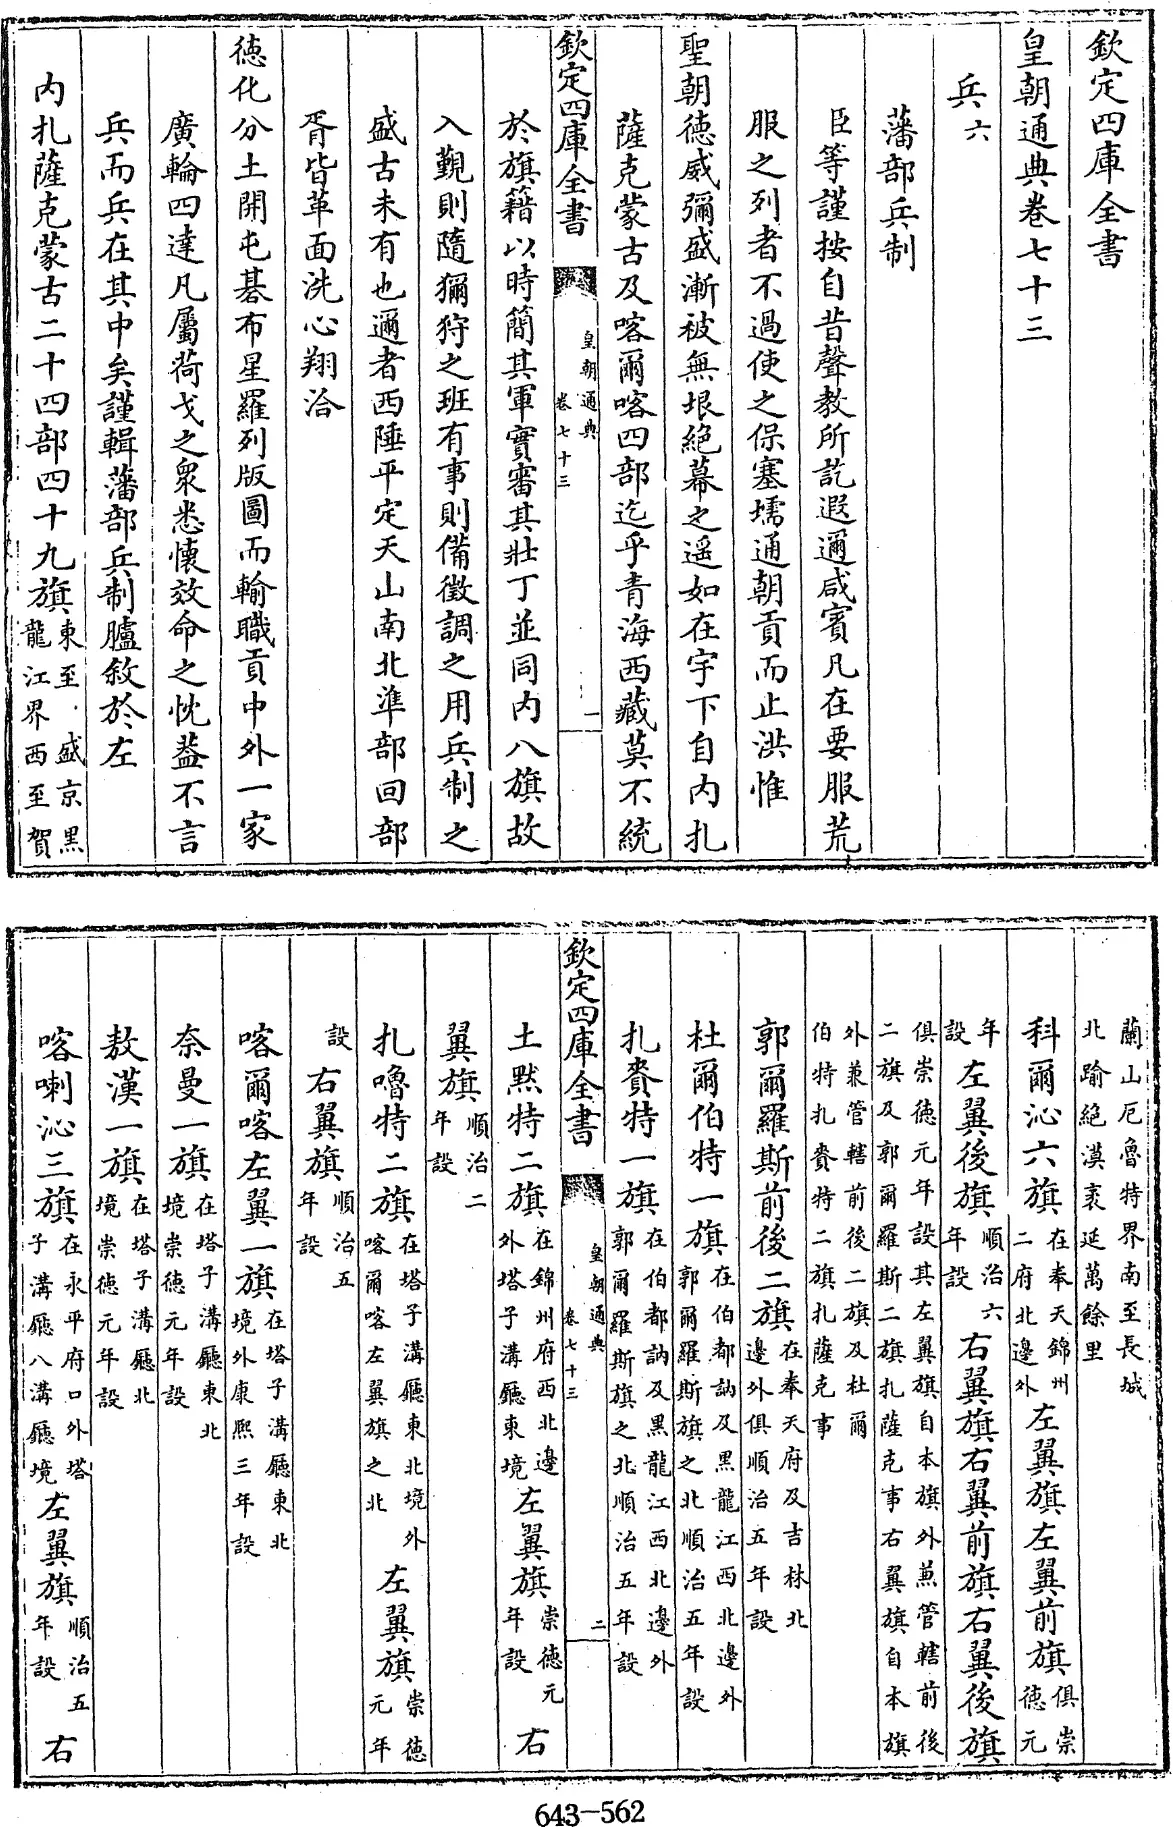 欽定四庫全書
皇朝通典卷七十三
兵六
藩部兵制
臣等謹按自昔聲教所訖遐邇咸賓凡在要服荒
服之列者不過使之保塞壖通朝貢而止洪惟
聖朝德威彌盛漸被無垠絶幕之遥如在宇下自内扎
薩克蒙古及喀爾喀四部迄乎青海西藏莫不統
欽定四庫全書
皇朝通典
卷七十三
一
於旗籍以時簡其軍實審其壯丁並同内八旗故
入覲則隨獮狩之班有事則備徵調之用兵制之
盛古未有也邇者西陲平定天山南北準部回部
胥皆革面洗心翔洽
德化分土開屯碁布星羅列版圖而輸職貢中外一家
廣輪四達凡屬荷戈之衆悉懷效命之忱葢不言
兵而兵在其中矣謹輯藩部兵制臚敘於左
内扎薩克蒙古二十四部四十九旗東至盛京黑
龍江界西至賀
蘭山厄魯特界南至長城
北踰絶漠袤延萬餘里
科爾沁六旗在奉天錦州
二府北邊外左翼旗左翼前旗俱崇
德元
年
設左翼後旗順治六
年設右翼旗右翼前旗右翼後旗
俱崇德元年設其左翼旗自本旗外兼管轄前後
二旗及郭爾羅斯二旗扎薩克事右翼旗自本旗
外兼管轄前後二旗及杜爾
伯特扎賚特二旗扎薩克事
郭爾羅斯前後二旗在奉天府及吉林北
邊外俱順治五年設
杜爾伯特一旗在伯都訥及黑龍江西北邊外
郭爾羅斯旗之北順治五年設
扎賚特一旗在伯都訥及黑龍江西北邊外
郭爾羅斯旗之北順治五年設
欽定四庫全書
皇朝通典
卷七十三
二
土黙特二旗在錦州府西北邊
外塔子溝廳東境左翼旗崇德元
年設右
翼旗順治二
年設
扎嚕特二旗在塔子溝廳東北境外
喀爾喀左翼旗之北左翼旗崇德
元年
設右翼旗順治五
年設
喀爾喀左翼一旗在塔子溝廳東北
境外康熙三年設
奈曼一旗在塔子溝廳東北
境崇德元年設
敖漢一旗在塔子溝廳北
境崇德元年設
喀喇沁三旗在永平府口外塔
子溝廳八溝廳境左翼旗順治五
年設右
643-562